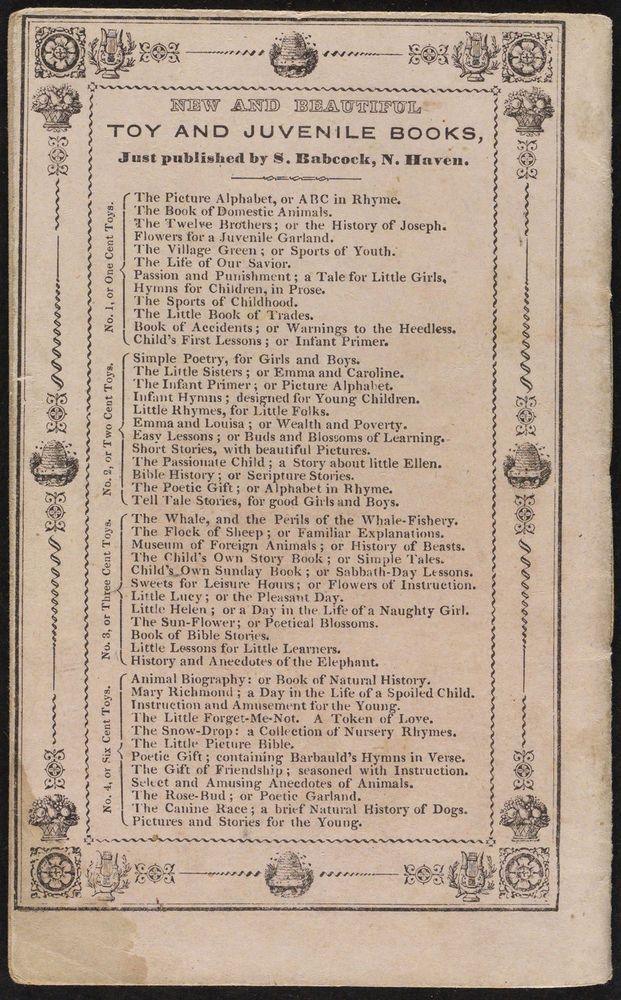 NEW AND BEAUTIFUL
TOY AND JUVENILE BOOKS,
Just published by S. Babcock, N. Haven.
No. 1, or One Cent Toys.
The Picture Alphabet, or ABC in Rhyme.
The Book of Domestic Animals.
The Twelve Brothers; or the History of Joseph.
Flowers for a Juvenile Garland.
The Village Green; or Sports of Youth.
The Life of Our Savior.
Passion and Punishment; a Tale for Little Girls,
Hymns for Children, in Prose.
The Sports of Childhood.
The Little Book of Trades.
Book of Accidents; or Warnings to the Heedless.
Child's First Lessons; or Infant Primer.
No. 2, or Two Cent Toys.
Simple Poetry, for Girls and Boys.
The Little Sisters; or Emma and Caroline.
The Infant Primer; or Picture Alphabet.
Infant Hymns; designed for Young Children.
Little Rhymes, for Little Folks.
Emma and Louisa; or Wealth and Poverty.
Easy Lessons; or Buds and Blossoms of Learning.
Short Stories, with beautiful Pictures.
The Passionate Child; a Story about little Ellen.
Bible History; or Scripture Stories.
The Poetic Gift; or Alphabet in Rhyme.
Tell Tale Stories, for good Girls and Boys.
No. 3, or Three Cent Toys.
The Whale, and the Perils of the Whale-Fishery.
The Flock of Sheep; or Familiar Explanations.
Museum of Foreign Animals; or History of Beasts.
The Child's Own Story Book; or Simple Tales.
Child's Own Sunday Book; or Sabbath-Day Lessons.
Sweets for Leisure Hours; or Flowers of Instruction.
Little Lucy; or the Pleasant Day.
Little Helen; or a Day in the Life of a Naughty Girl.
The Sun-Flower; or Poetical Blossoms.
Book of Bible Stories.
Little Lessons for Little Learners.
History and Anecdotes of the Elephant.
No. 4, or Six Cent Toys.
Animal Biography: or Book of Natural History.
Mary Richmond; a Day in the Life of a Spoiled Child.
Instruction and Amusement for the Young.
The Little Forget-Me-Not. A Token of Love.
The Snow-Drop: a Collection of Nursery Rhymes.
The Little Picture Bible.
Poetic Gift; containing Barbauld's Hymns in Verse.
The Gift of Friendship; seasoned with Instruction.
Select and Amusing Anecdotes of Animals.
The Rose-Bud; or Poetic Garland.
The Canine Race; a brief Natural History of Dogs.
Pictures and Stories for the Young.